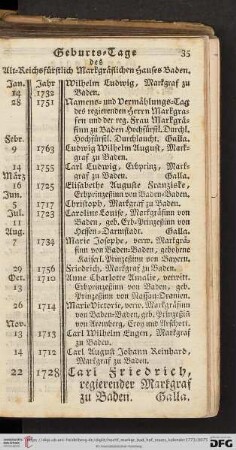 Geburts-Tage 35
des
Alt-Reichsfürstlich Markgräflichen Hauses Baden.
Jan. Jahr Wilhelm Ludwig, Markgraf zu
14 1732 Baden.
28 1751 Namens- und Vermählungs-Tag
des regierenden Herrn Markgra-
fen und der reg. Frau Markgrä-
finn zu Baden Hochfürstl. Durchl.
Hochfürstl. Durchlaucht. Galla.
Febr.
9 1763 Ludwig Wilhelm August, Mark-
graf zu Baden.
14 1755 Carl Ludwig, Erbprinz, Mark-
März graf zu Baden. Galla.
16 1725 Elisabethe Auguste Franziske,
Jun. Erbprinzeßinn von Baden-Baden.
5 1717 Christoph, Markgraf zu Baden.
Jul. 1723 Caroline Louise, Markgräfinn von
11 Baden, geb. Erb-Prinzeßinn von
Aug. Hessen-Darmstadt. Galla.
7 1734 Marie Josephe, verw. Markgrä-
finn von Baden-Baden, gebohrne
Kaiserl. Prinzeßinn von Bayern.
29 1756 Friedrich, Markgraf zu Baden.
Oct. 1720 Anne Charlotte Amalie, verwitt.
13 Erbprinzeßinn von Baden, geb.
Prinzeßinn von Nassau-Oranien.
26 1714 Marie Victorie, verw. Markgräfinn
von Baden-Baden, geb. Prinzeßin
Nov. von Aremberg, Croy und Arschott.
13 1713 Carl Wilhelm Eugen, Markgraf
zu Baden.
14 1712 Carl August Johann Reinhard,
Markgraf zu Baden.
22 1728 Carl Friedrich,
regierender Markgraf
zu Baden. Galla.